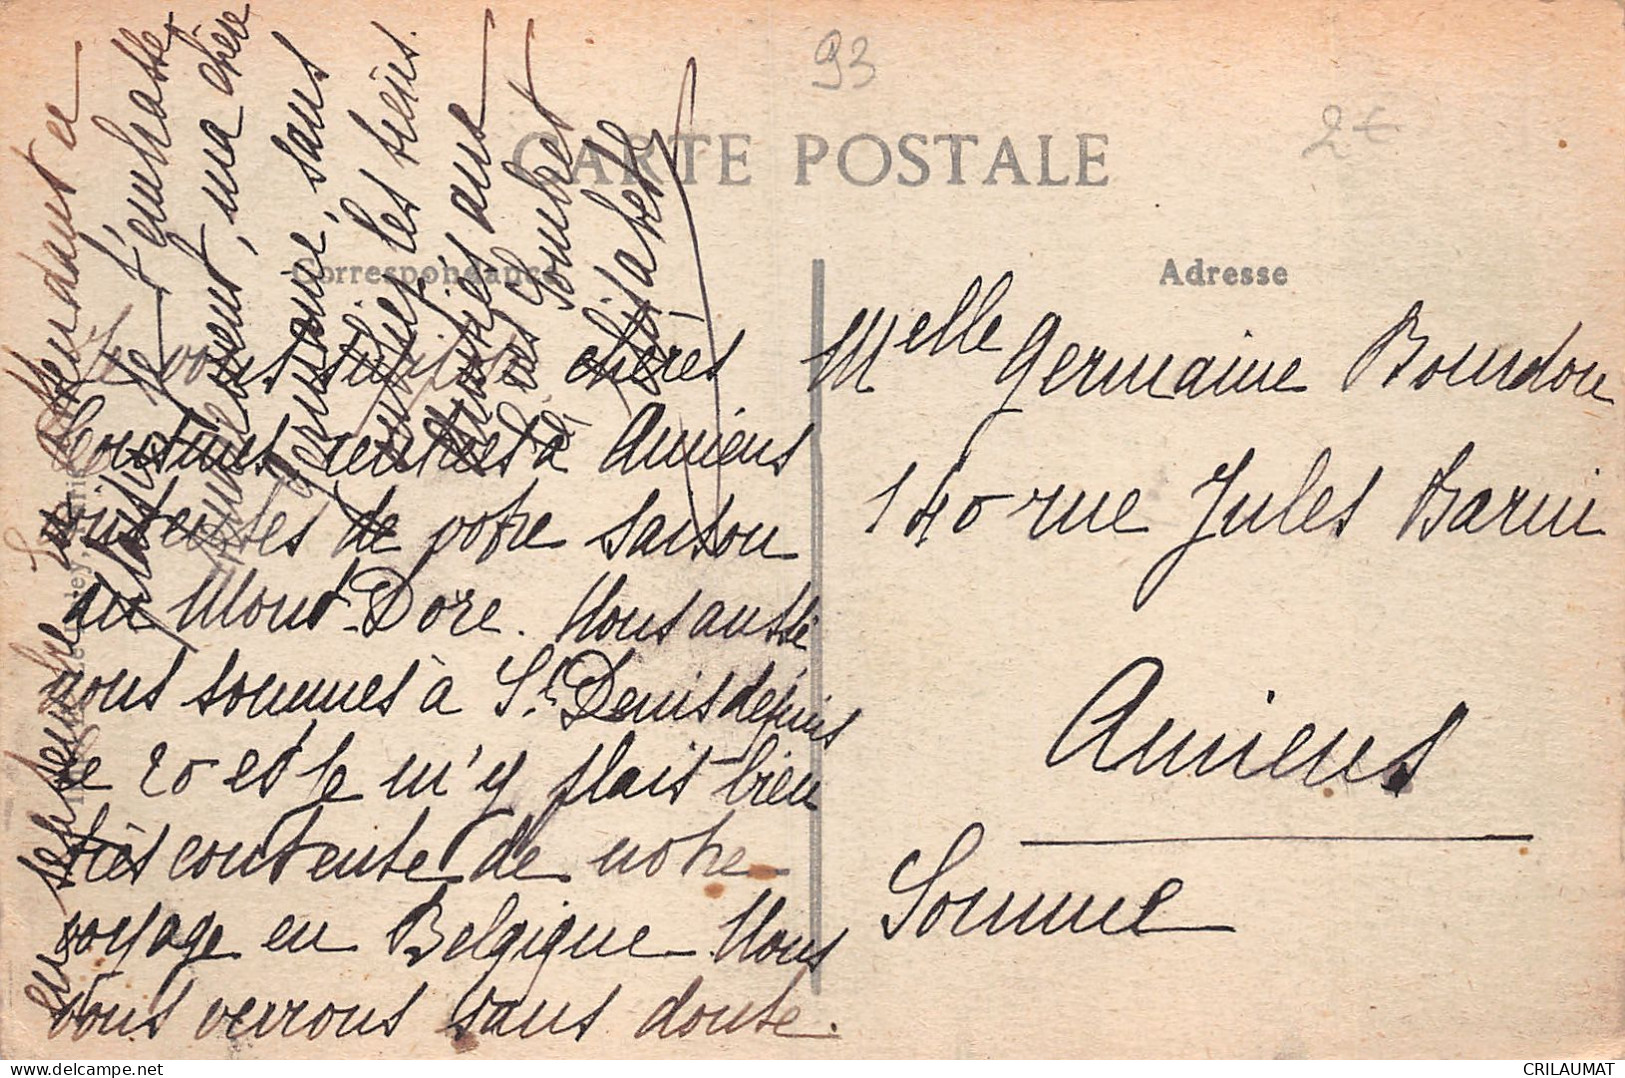 93
2€
CARTE POSTALE
Correspondance
Adresse
Je vous chères
Cousines rentrées à Amiens
contentes de votre saison
au Mont-Dore. Nous aussi
nous sommes à St. Denis depuis
le 20 et je m'y plais bien
très contente de notre
voyage en Belgique. Nous
vous verrons sans doute
en septembre
En attendant ce
plaisir je t'embrasse
ma chère
Germaine, sans
oublier les tiens.
amitiés aus
Gombert
Elisabeth
Melle Germaine Bourdon
140 rue Jules Barni
Amiens
Somme
CRILAUMAT